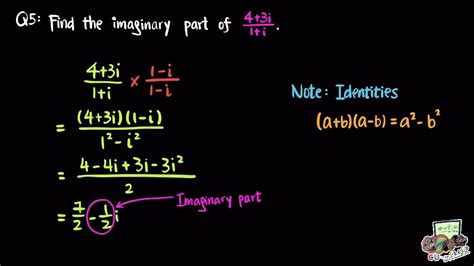 Q5: Find the imaginary part of (4+3i)/(1+i).
(4+3i)/(1+i) × (1-i)/(1-i)
= ((4+3i)(1-i))/(1²-i²)
= (4-4i+3i-3i²)/2
= 7/2 - 1/2 i
Imaginary part
Note: Identities
(a+b)(a-b) = a²-b²